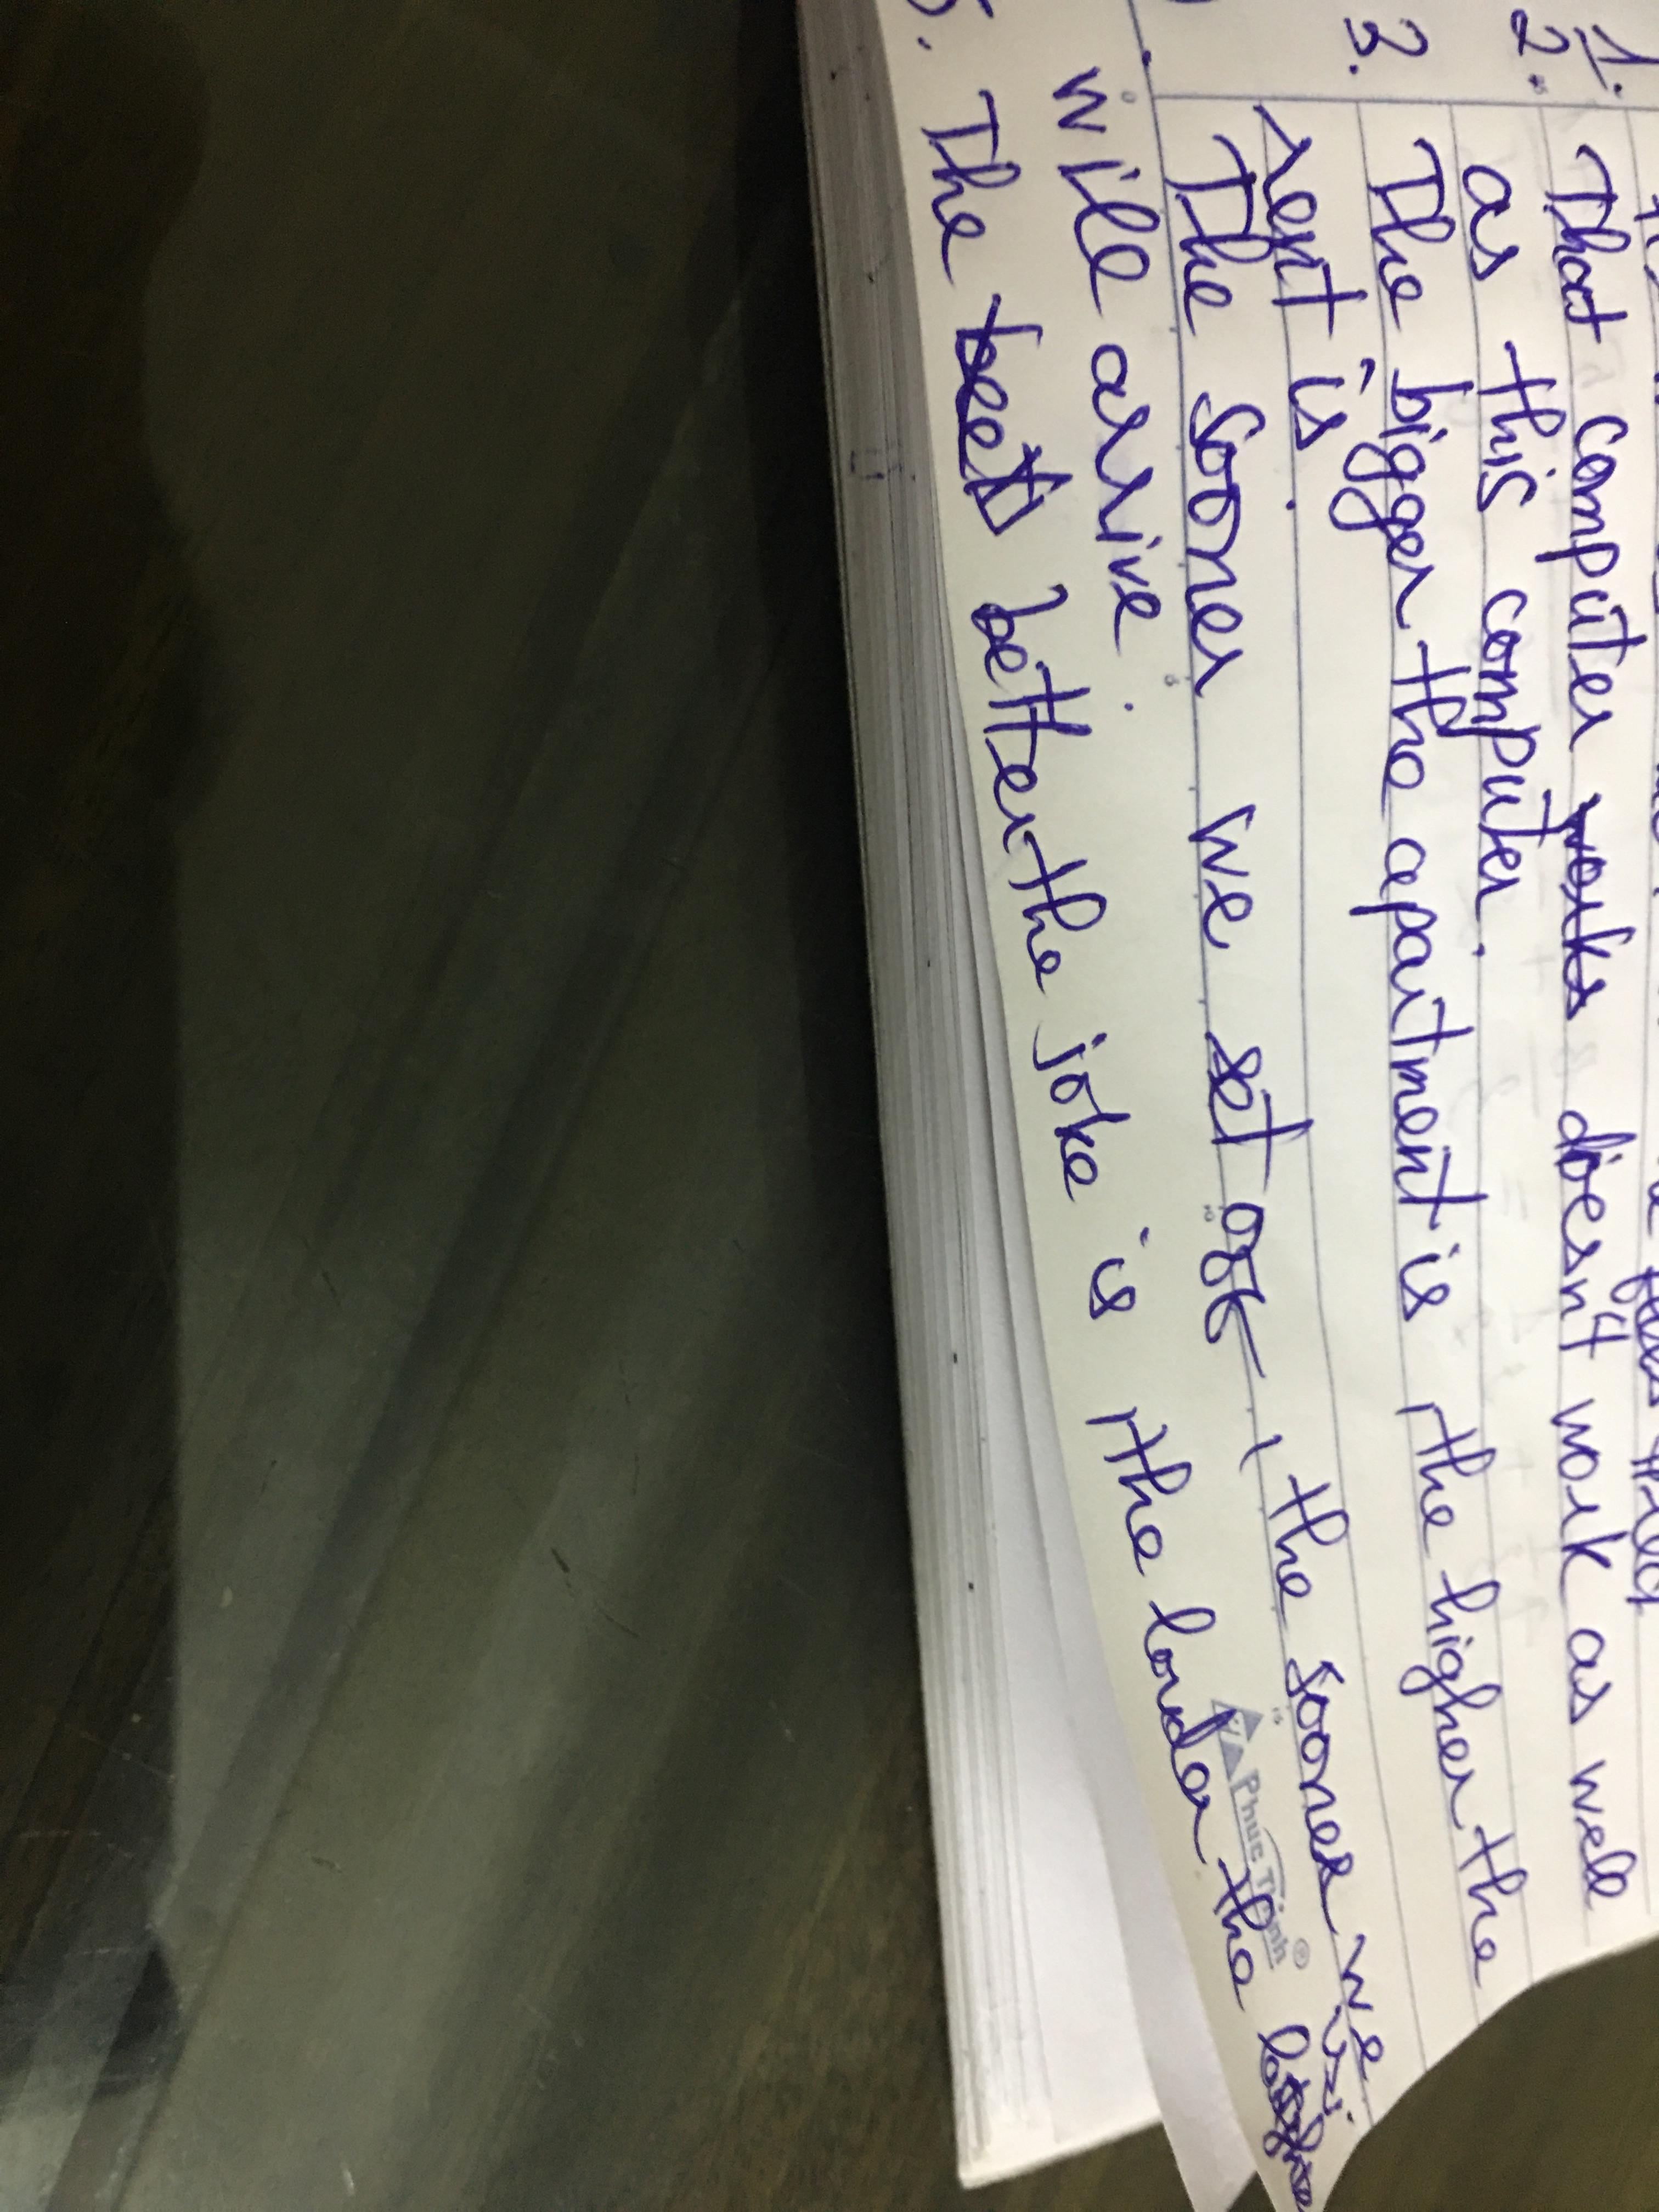 1.
2. That computer works doesn't work as well
as this computer.
3. The bigger the apartment is, the higher the
rent is.
The sooner we set off, the sooner we
will arive.
5. The better the joke is, the louder the
Phuc Trinh®